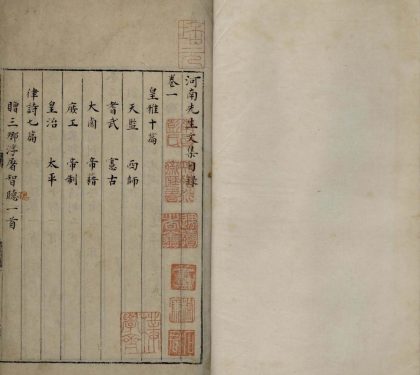 河南先生文集目錄
卷一
皇雅十篇
天監　西師
耆武　憲古
大鹵　帝籍
庶工　帝制
皇治　太平
律詩七篇
贈三鄉浮屠智一首